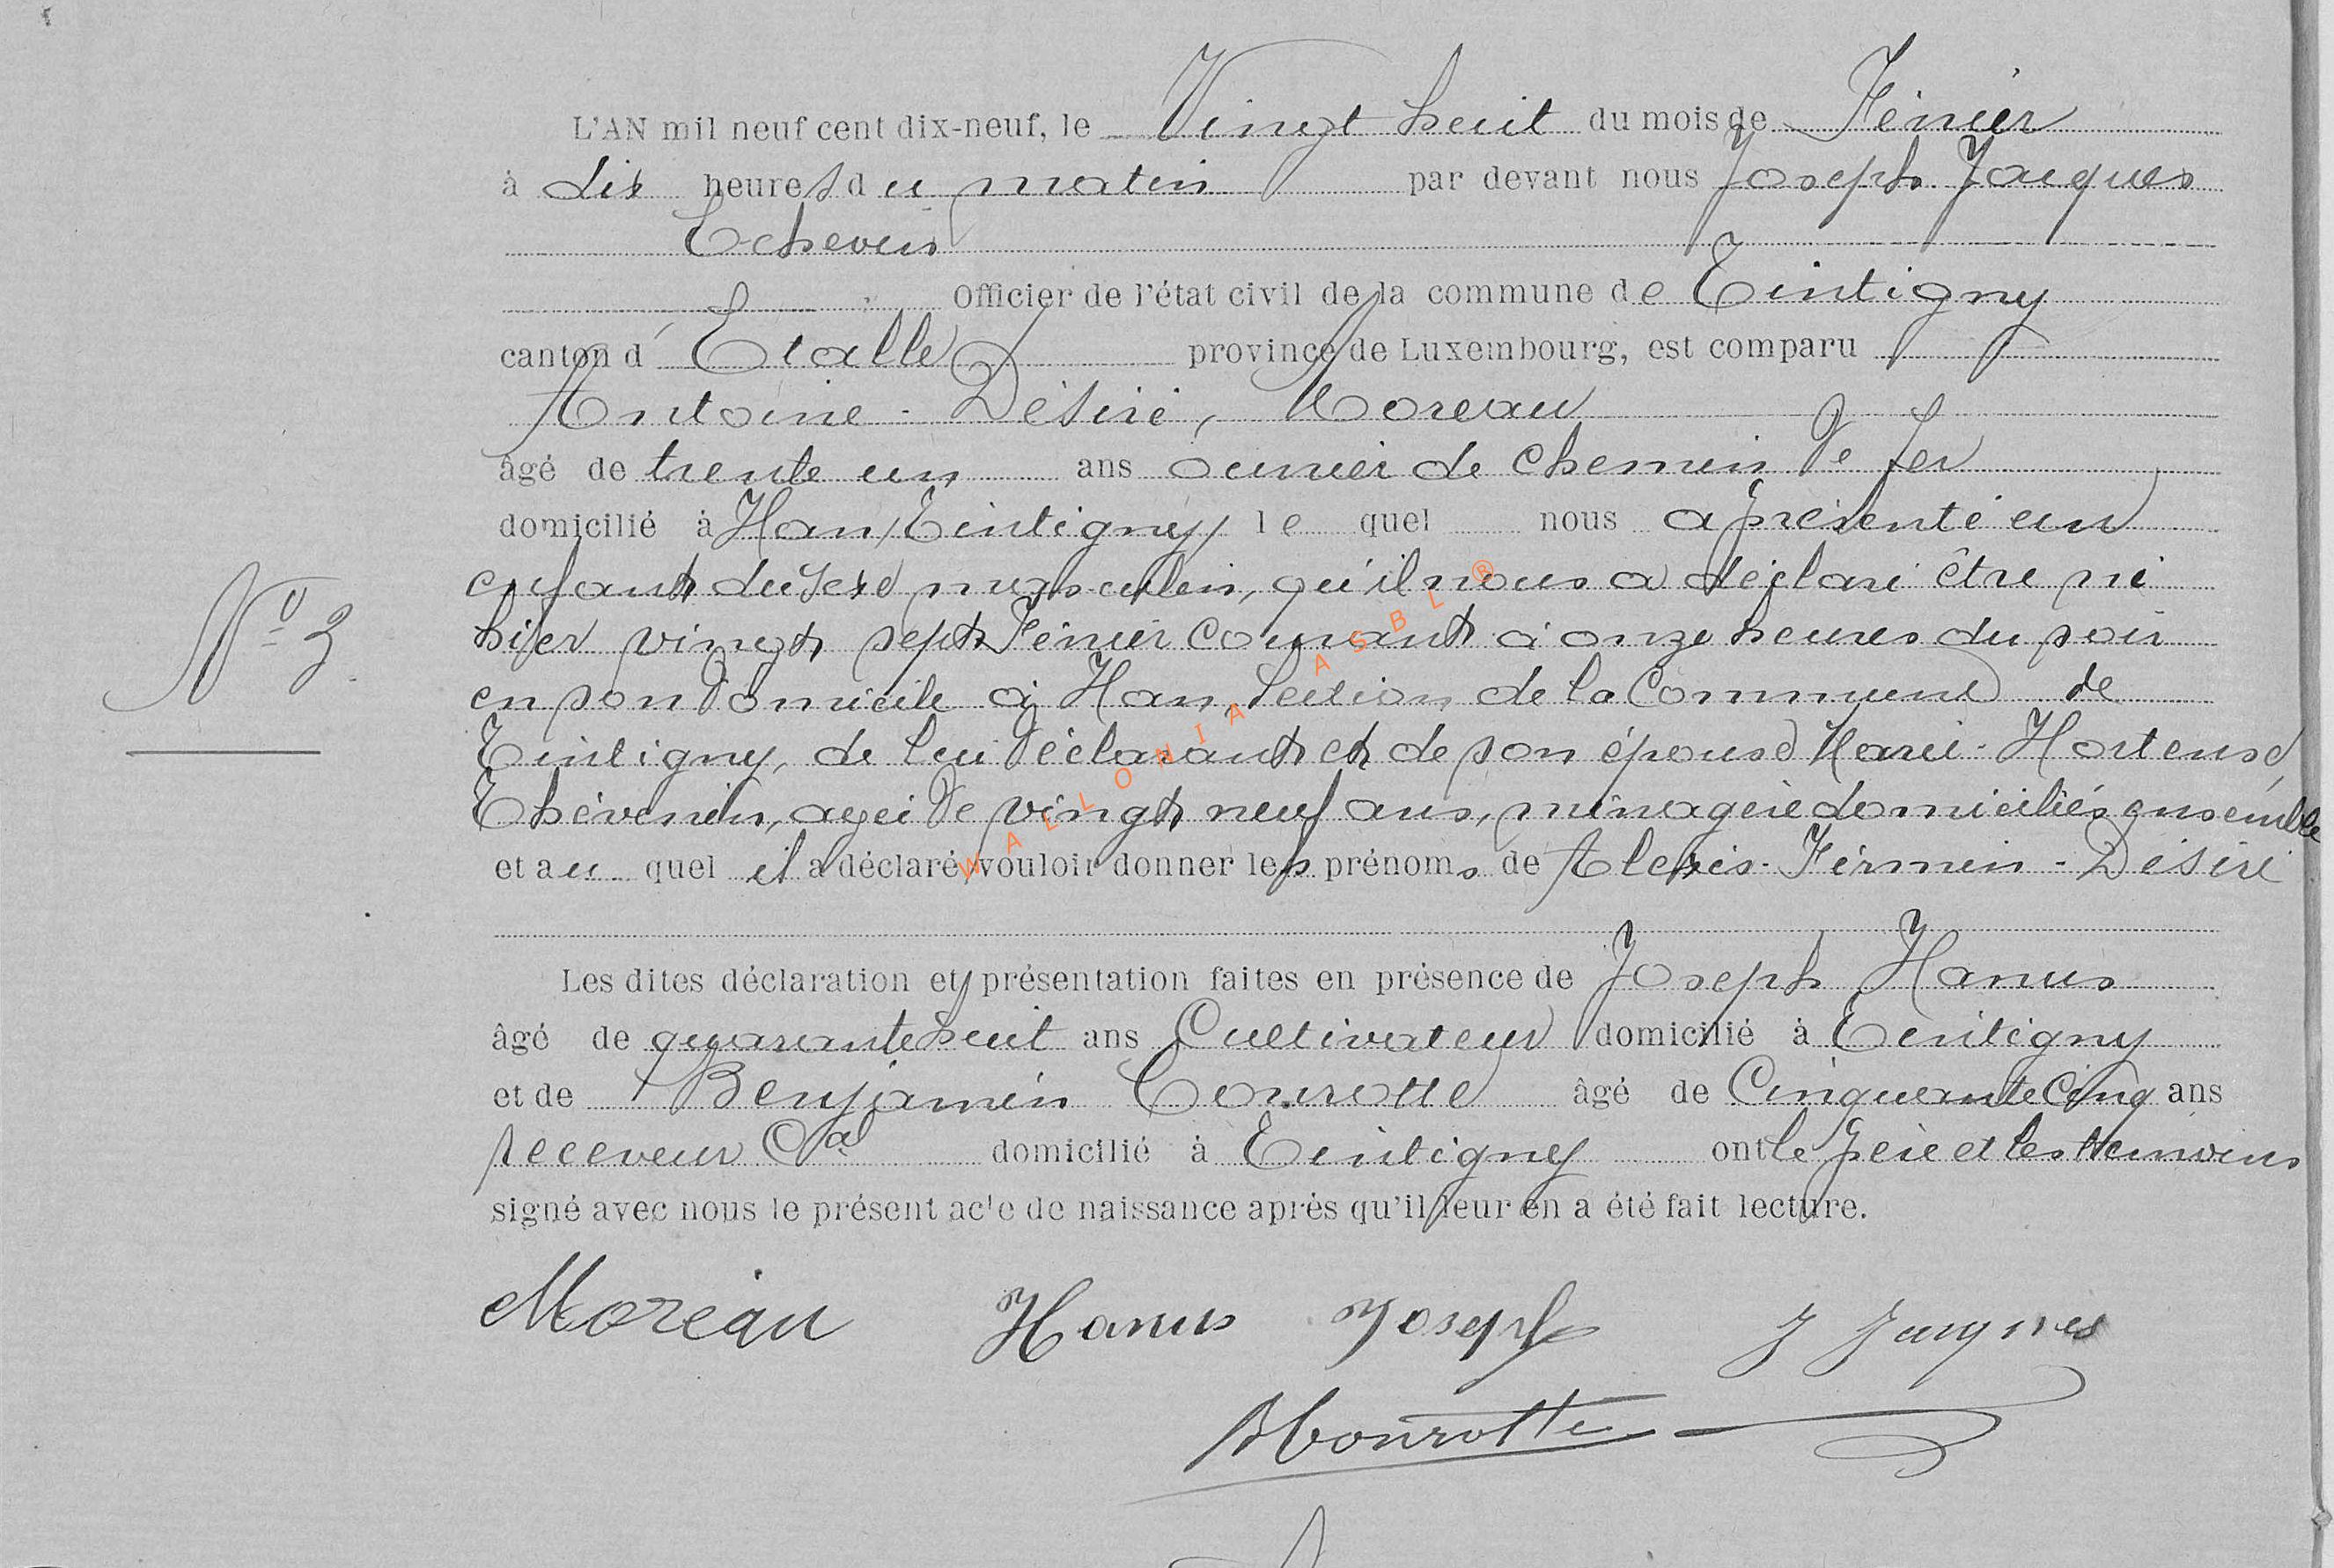 L'AN mil neuf cent dix-neuf, le Vingt huit du mois de Février
à dix heures du matin par devant nous Joseph Jacques
Echevin
Officier de l'état civil de la commune de Tintigny
canton d'Etalle province de Luxembourg, est comparu
Antoine - Désiré, Moreau
âgé de trente un ans ouvrier de chemin de fer
domicilié à Han, Tintigny, le quel nous a présenté un
enfant du sexe masculin, qu'il nous a déclaré être né
hier vingt sept Février courant à onze heures du soir
en son domicile à Han, Section de la Commune de
Nº 3
Tintigny, de lui déclarant et de son épouse Marie-Hortense,
Thévenin, agée de vingt neuf ans, ménagère domiciliés ensemble
et au quel il a déclaré vouloir donner les prénoms de Alexis-Firmin-Désiré
Les dites déclaration et présentation faites en présence de Joseph Hanus
âgé de quarante huit ans Cultivateur domicilié à Tintigny
et de Benjamin Conrotte âgé de Cinquante Cinq ans
receveur Cal domicilié à Tintigny ont le père et les témoins
signé avec nous le présent acte de naissance après qu'il leur en a été fait lecture.
Moreau Hanus Joseph J Jacques
B Conrotte
WALLONIA ASBL ®